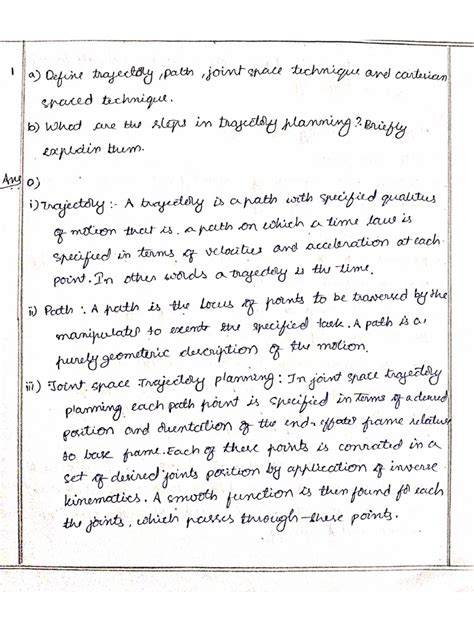 1 a) Define trajectory, path, joint space technique and cartesian
spaced technique.
b) What are the steps in trajectory planning? Briefly
explain them.
Ans a)
i) Trajectory :- A trajectory is a path with specified qualities
of motion that is a path on which a time law is
specified in terms of velocities and acceleration at each
point. In other words a trajectory is the time.
ii) Path : A path is the locus of points to be traversed by the
manipulator to the specified task. A path is a
purely geometric description of the motion.
iii) Joint space Trajectory planning : In joint space trajectory
planning each path point is specified in terms of a desired
position and orientation of the end-effector frame relative
to base frame. Each of these points is in a
set of desired joints position by application of inverse
kinematics. A smooth function is then found for each
the joints, which passes through these points.